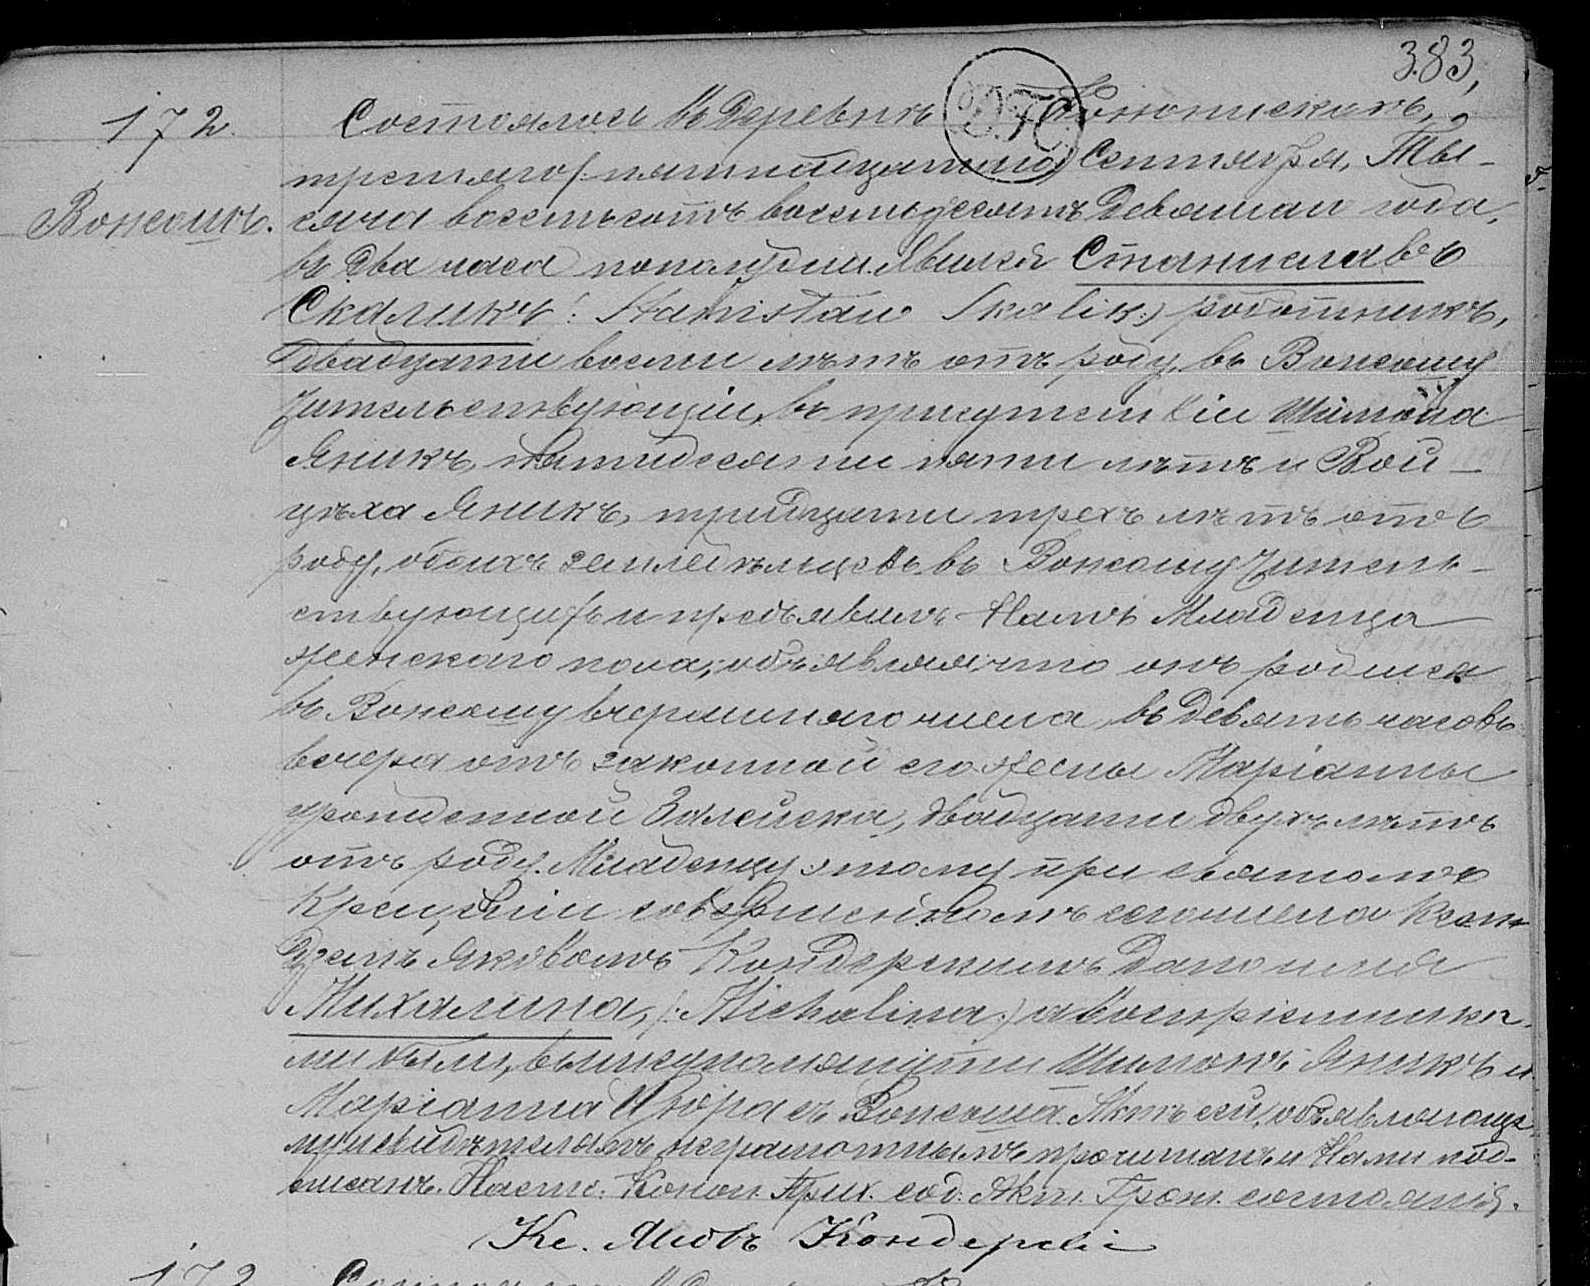 383,
172. Состоялось въ деревнѣ Конопискахъ,
третьяго /: пятнадцатаго Сентября, Ты-
Вонсошъ. сяча восемьсотъ восемьдесятъ девятаго года,
въ два часа пополудни. Явился Станиславъ
Скаликъ /: Stanisław Skalik :/ работникъ,
двадцати восьми лѣтъ отъ роду, въ Вонсошу
жительствующій, въ присутствіи Шимона
Яникъ, пятидесяти пяти лѣтъ и Вой-
цѣха Яникъ, тридцати трехъ лѣтъ отъ
роду, обоихъ земледѣльцевъ въ Вонсошу житель-
ствующихъ и предъявилъ Намъ Младенца
женскаго пола, объявляя что онъ родился
въ Вонсошу вчерашняго числа, въ девять часовъ
вечера отъ законной его жены Маріанны
урожденной Залейска, двадцати двухъ лѣтъ
отъ роду. Младенцу этому при святомъ
Крещеніи совершенномъ сего числа Ксен-
дземъ Яковомъ Кондерскимъ дано имя
Михалина, /: Michalina :/ а воспріемника-
ми были, вышеупомянутый Шимонъ Яникъ и
Маріанна съ Вонсоша. Актъ сей, объявляюще-
му и свидѣтелямъ неграмотнымъ прочитанъ и Нами под-
писанъ. Наст. Коноп. Прих. сод. Акт. Граж. состоянія.
Кс. Яковъ Кондерскій
173 Состоя